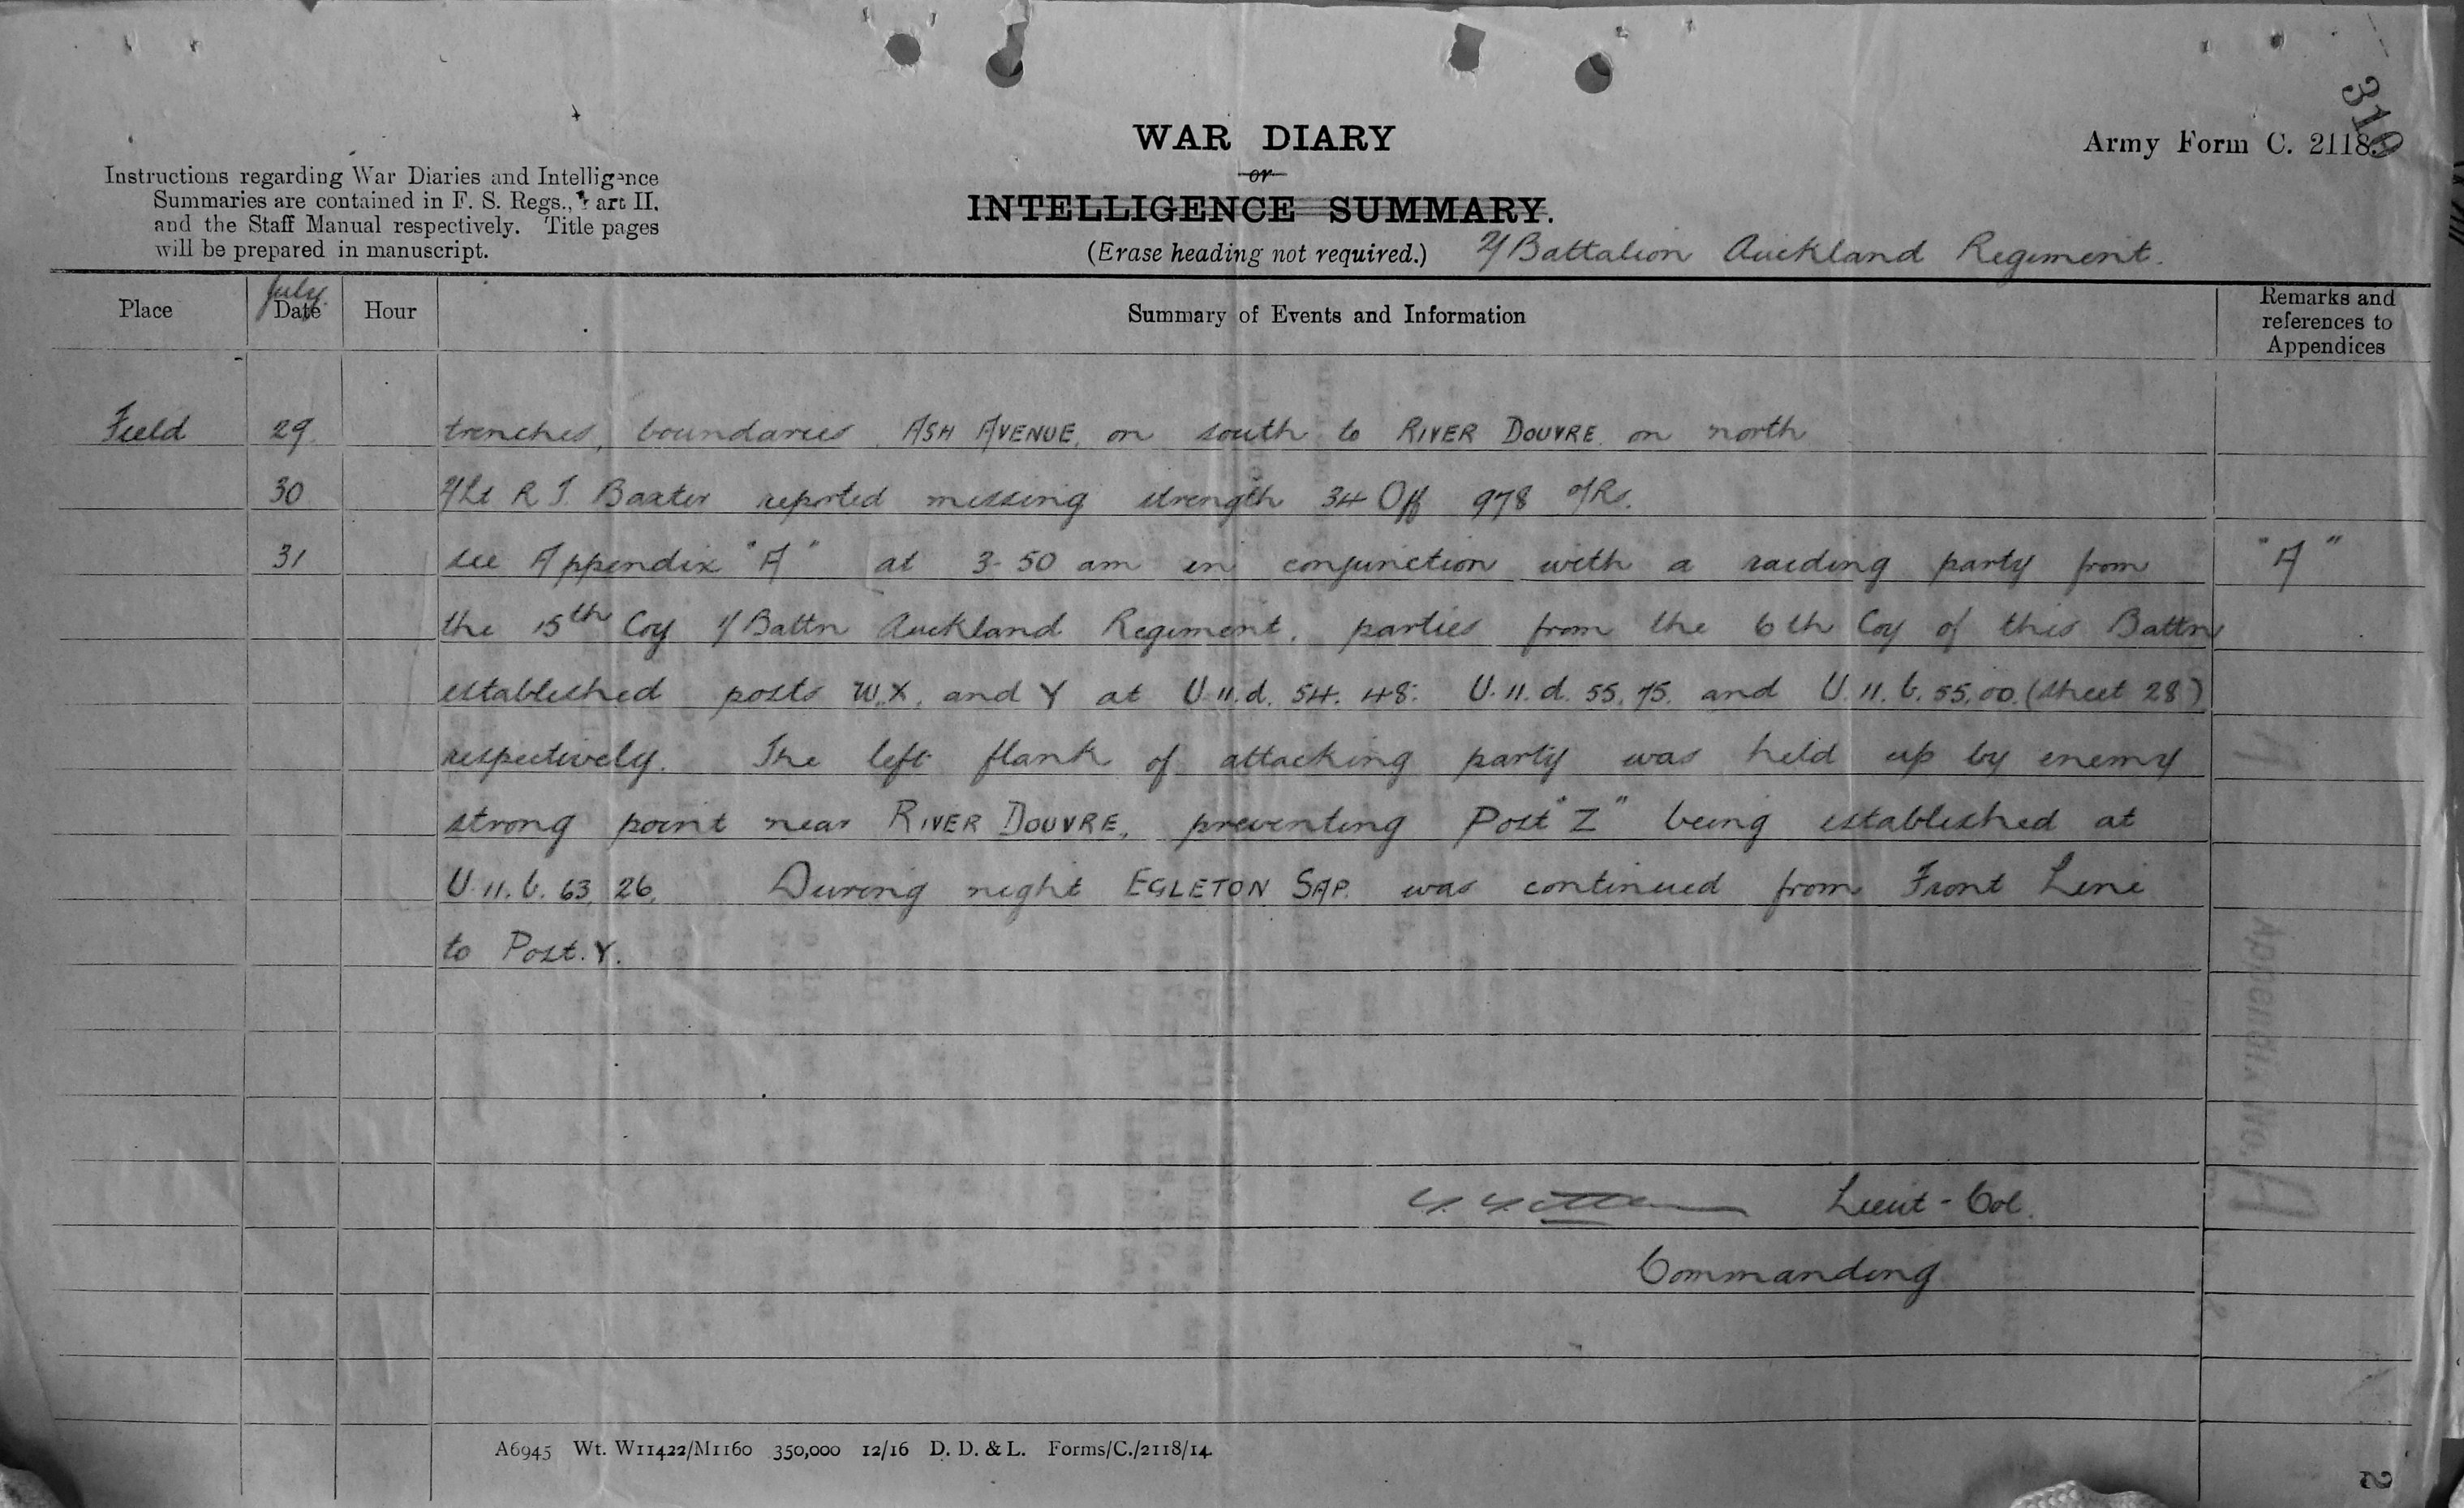 319
WAR DIARY
Army Form C. 2118.
or
INTELLIGENCE SUMMARY.
(Erase heading not required.) 2/Battalion Auckland Regiment.
Instructions regarding War Diaries and Intelligence
Summaries are contained in F. S. Regs., Part II.
and the Staff Manual respectively. Title pages
will be prepared in manuscript.
July
Place Date Hour Summary of Events and Information Remarks and
references to
Appendices
Field 29 trenches, boundaries ASH AVENUE, on south to RIVER DOUVRE on north
30 2/Lt R J. Baxter reported missing strength 34 Off 978 O/Rs.
31 see Appendix "A" at 3-50 am in conjunction with a raiding party from "A"
the 15th Coy 1/Battn Auckland Regiment, parties from the 6th Coy of this Battn
established posts W.X. and Y at U.11.d. 54.48. U.11.d. 55.75. and U.11.b. 55.00. (Sheet 28)
respectively. The left flank of attacking party was held up by enemy
strong point near RIVER DOUVRE, preventing Post "Z" being established at
U.11.b. 63.26. During night EGLETON SAP. was continued from Front Line
to Post. Y.
Lieut-Col.
Commanding
A6945 Wt. W11422/M1160 350,000 12/16 D. D. & L. Forms/C./2118/14.